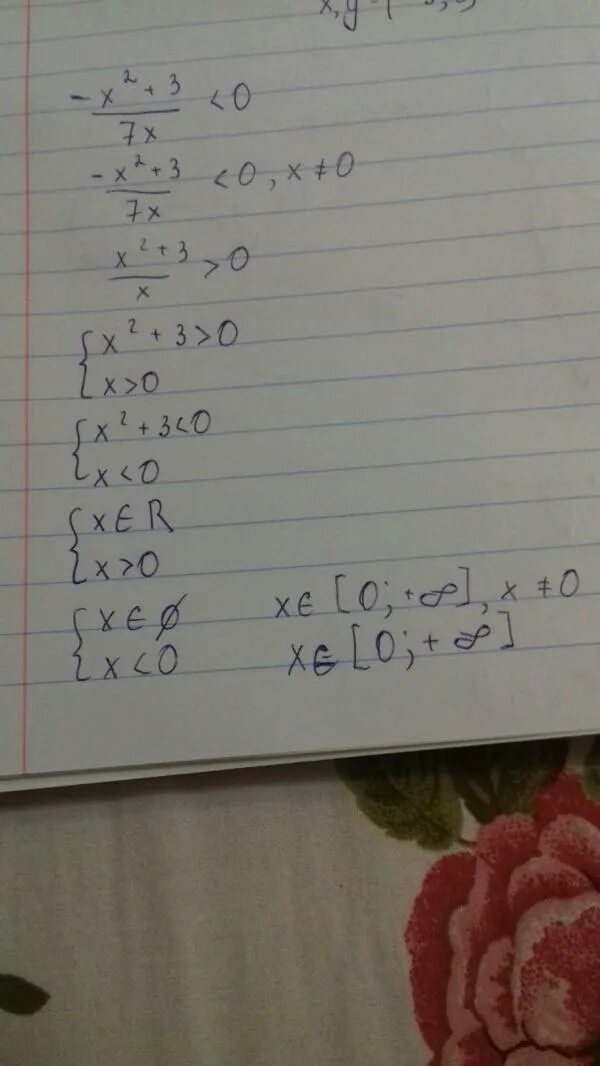 -\frac{x² + 3}{7x} < 0
-\frac{x² + 3}{7x} < 0, x ≠ 0
\frac{x² + 3}{x} > 0
{ x² + 3 > 0
{ x > 0
{ x² + 3 < 0
{ x < 0
{ x ∈ R
{ x > 0
{ x ∈ ∅
{ x < 0
x ∈ [0; +∞], x ≠ 0
x ∈ [0; +∞]